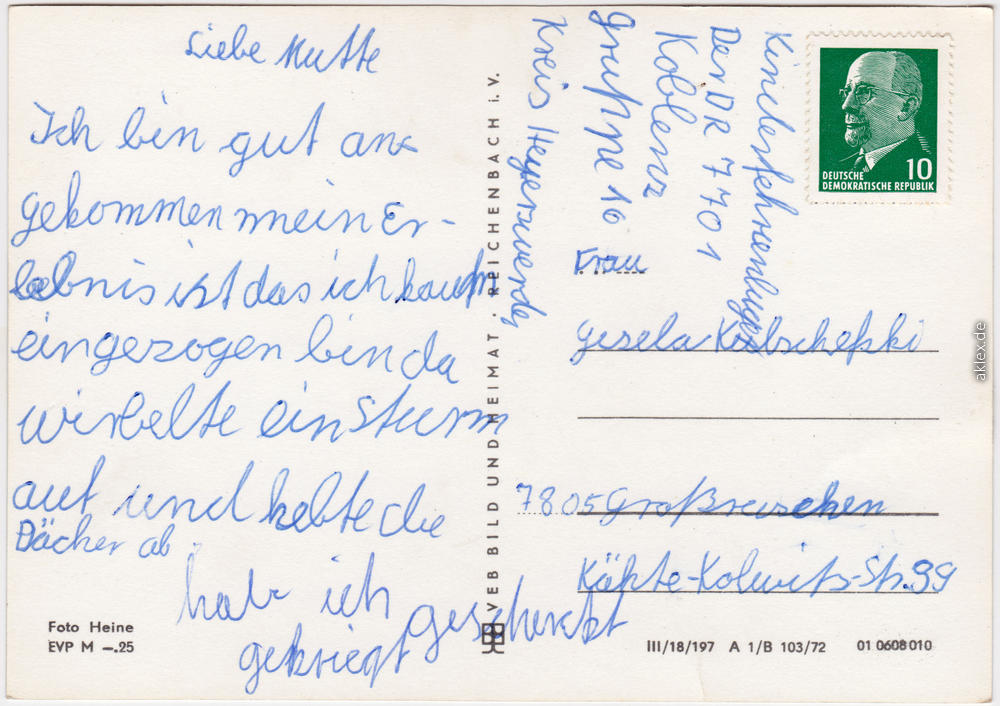 Liebe Mutte
Ich bin gut an-
gekommen mein Er-
lebnis ist das ich kaum
eingezogen bin da
wirbelte ein Sturm
auf und hebte die
Dächer ab.
hab ich
gekriegt geschenkt
Foto Heine
EVP M –.25
VEB BILD UND HEIMAT · REICHENBACH i. V.
Kinderferienlager
Der DR 7701
Koblenz
gruppe 16
Kreis Heyerswerder
DEUTSCHE
DEMOKRATISCHE REPUBLIK
10
Frau
Gesela
7805 Großräschen
Käpte-Kolwits-Str. 99
III/18/197 A 1/B 103/72 01 0608010
aklex.de